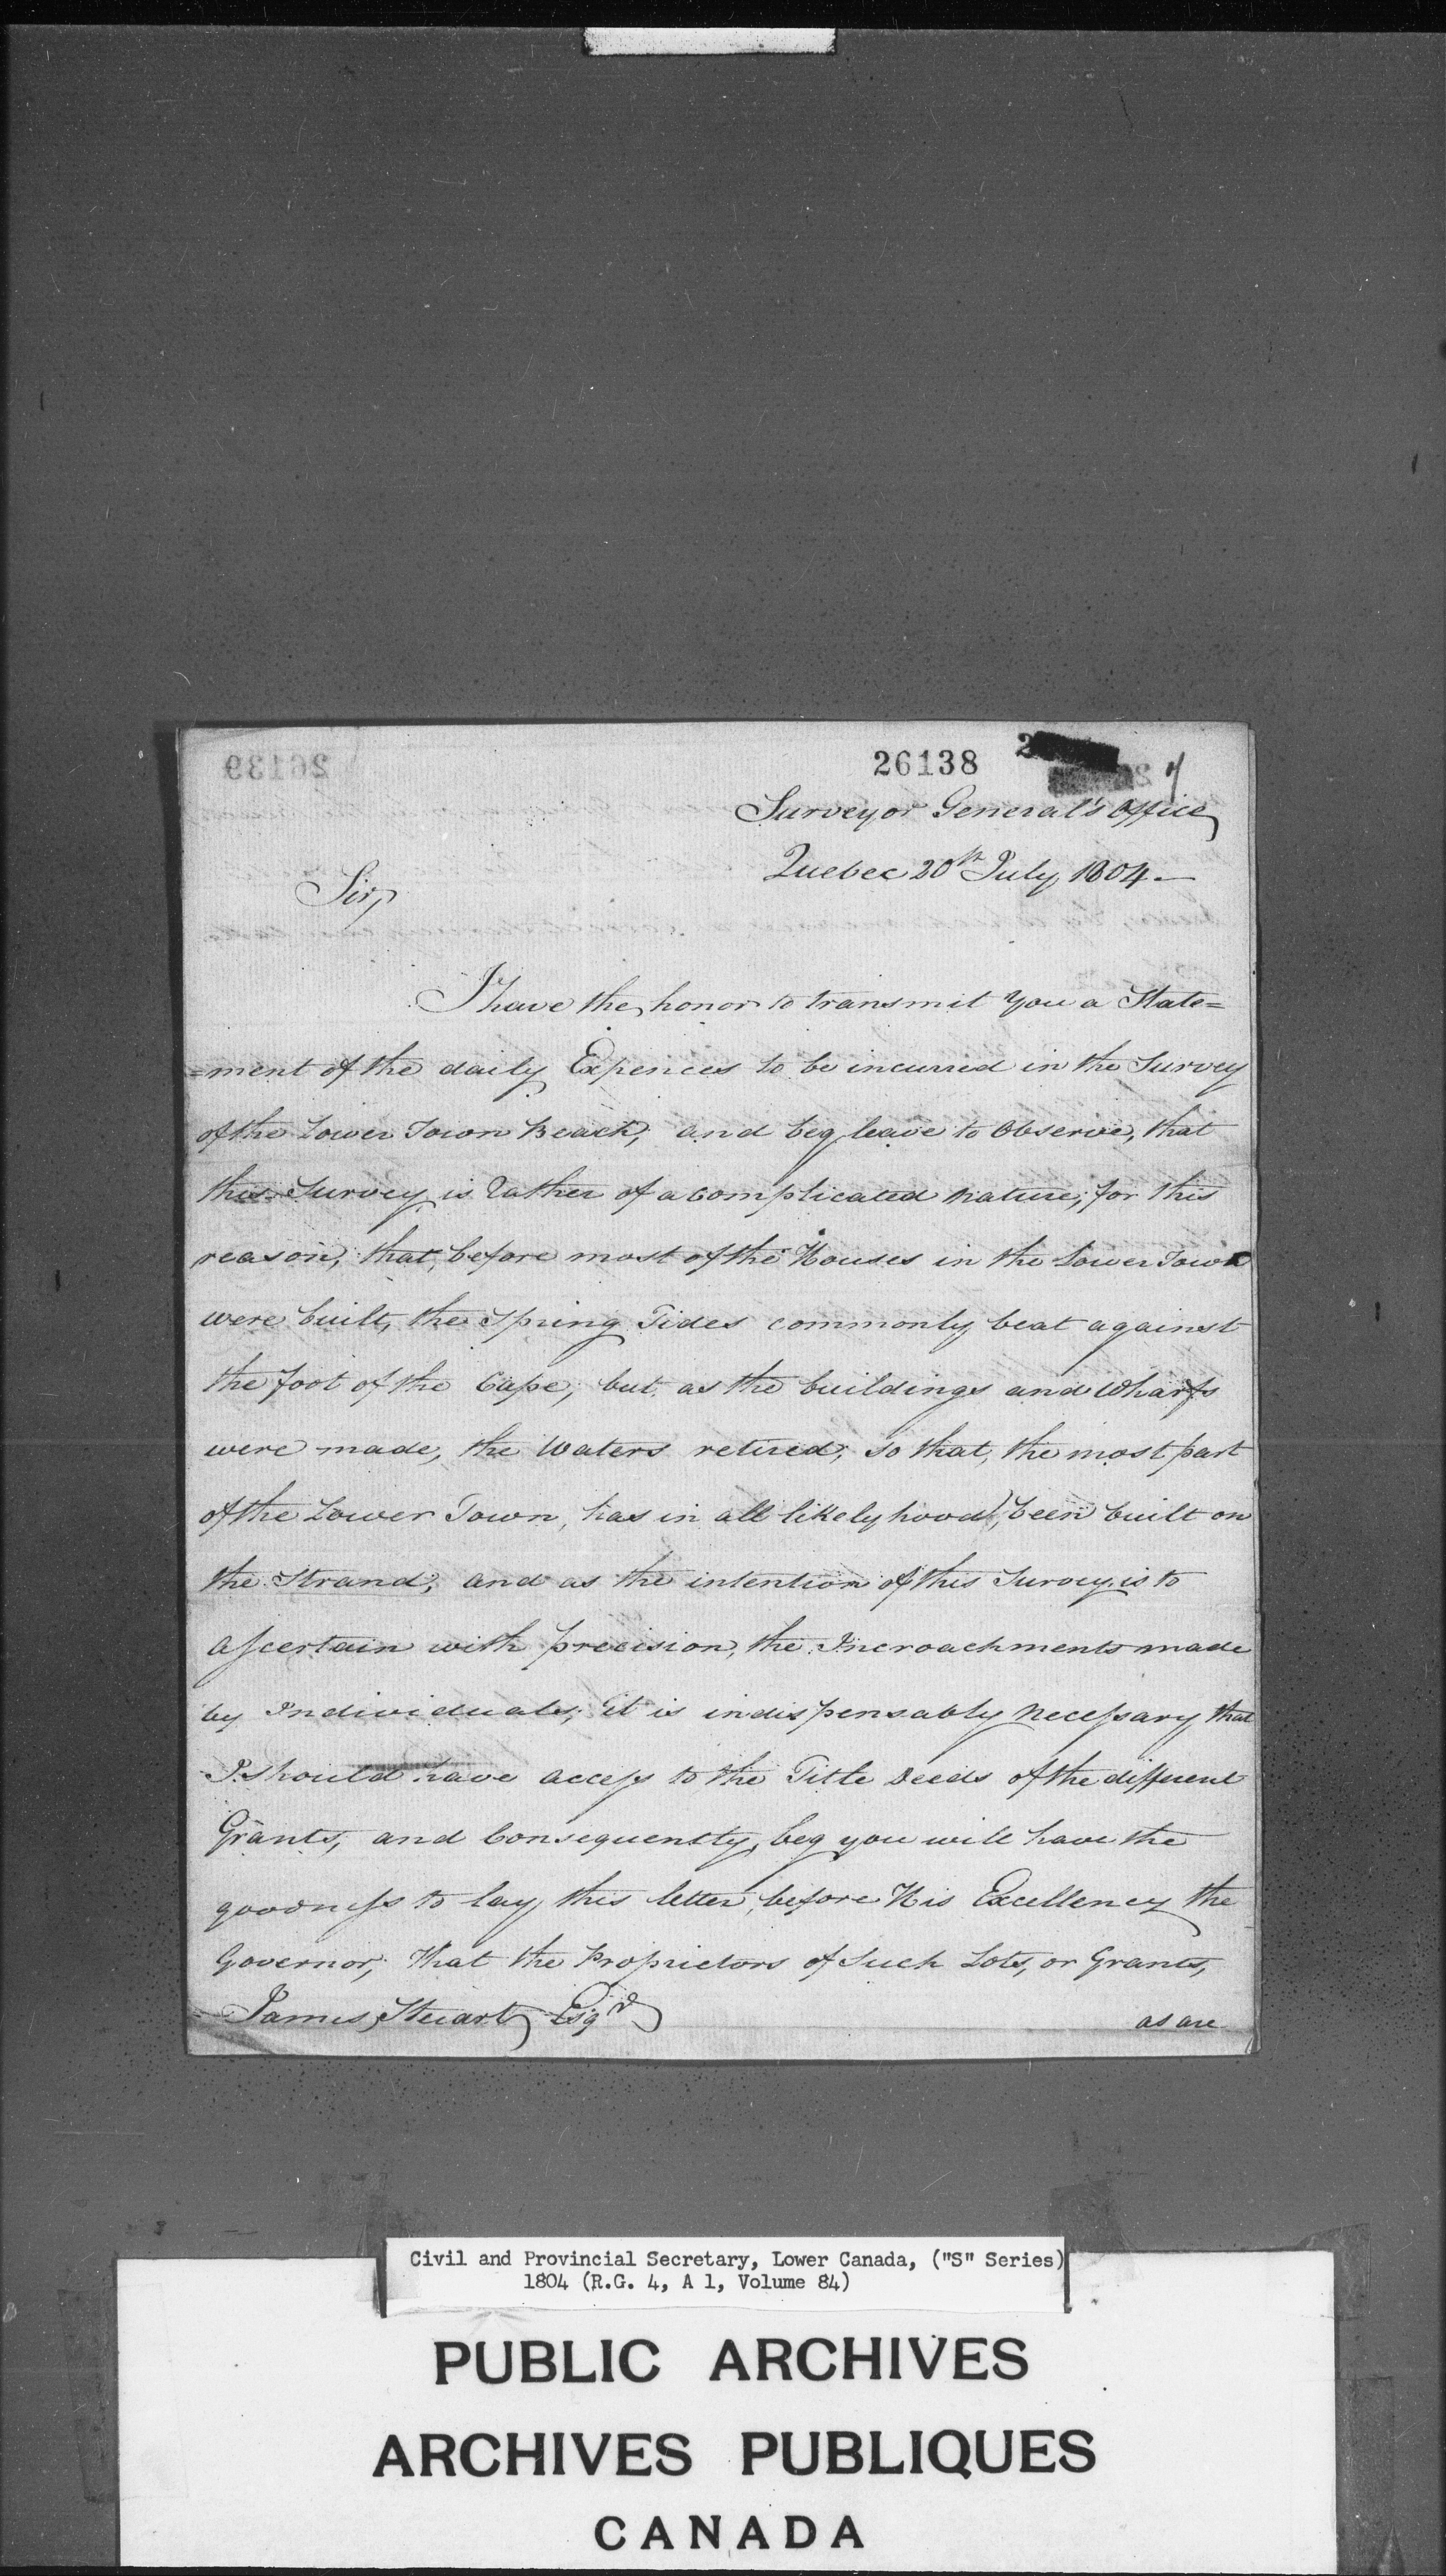 26138
Surveyor General's Office
Quebec 20th July 1804 —
Sir,
I have the honor to transmit You a State=
=ment of the daily Expences to be incurred in the Survey
of the Lower Town Beach, and beg leave to Observe, that
this Survey is Rather of a Complicated Nature, for this
reason, that, before most of the Houses in the Lower Town
were built, the Spring Tides commonly beat against
the foot of the Cape, but as the buildings and Wharfs
were made, the Waters retired, so that, the most part
of the Lower Town, has in all likelyhood, been built on
the Strand, and as the intention of this Survey is to
Ascertain with precision, the Incroachments made
by Individuals, it is indispensably Necessary that
I should have access to the Title Deeds of the different
Grants, and Consequently, beg you will have the
goodness to lay this letter, before His Excellency the
Governor, that the Proprietors of Such Lots, or Grants,
James Steuart Esqr
as are
Civil and Provincial Secretary, Lower Canada, ("S" Series)
1804 (R.G. 4, A 1, Volume 84)
PUBLIC ARCHIVES
ARCHIVES PUBLIQUES
CANADA